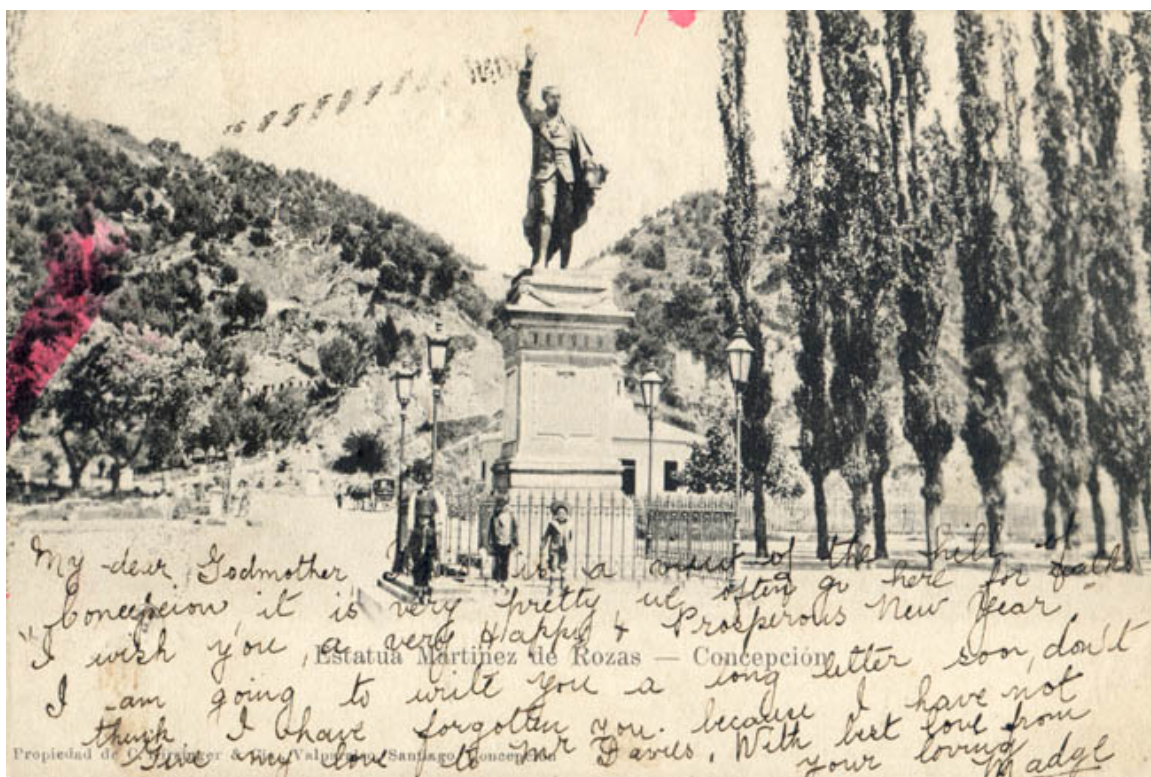 My dear Godmother is a view of the hills of
"Concepcion, it is very pretty we often go here for walks
I wish you, a very Happy & Prosperous New Year"
Estatua Martinez de Rozas — Concepción
I am going to write you a long letter soon, don't
think I have forgotten you. because I have not
Give my love to Mr Davies, With best love from
Propiedad de C. Kirsinger & Cia., Valparaiso, Santiago, Concepción
your loving
Madge